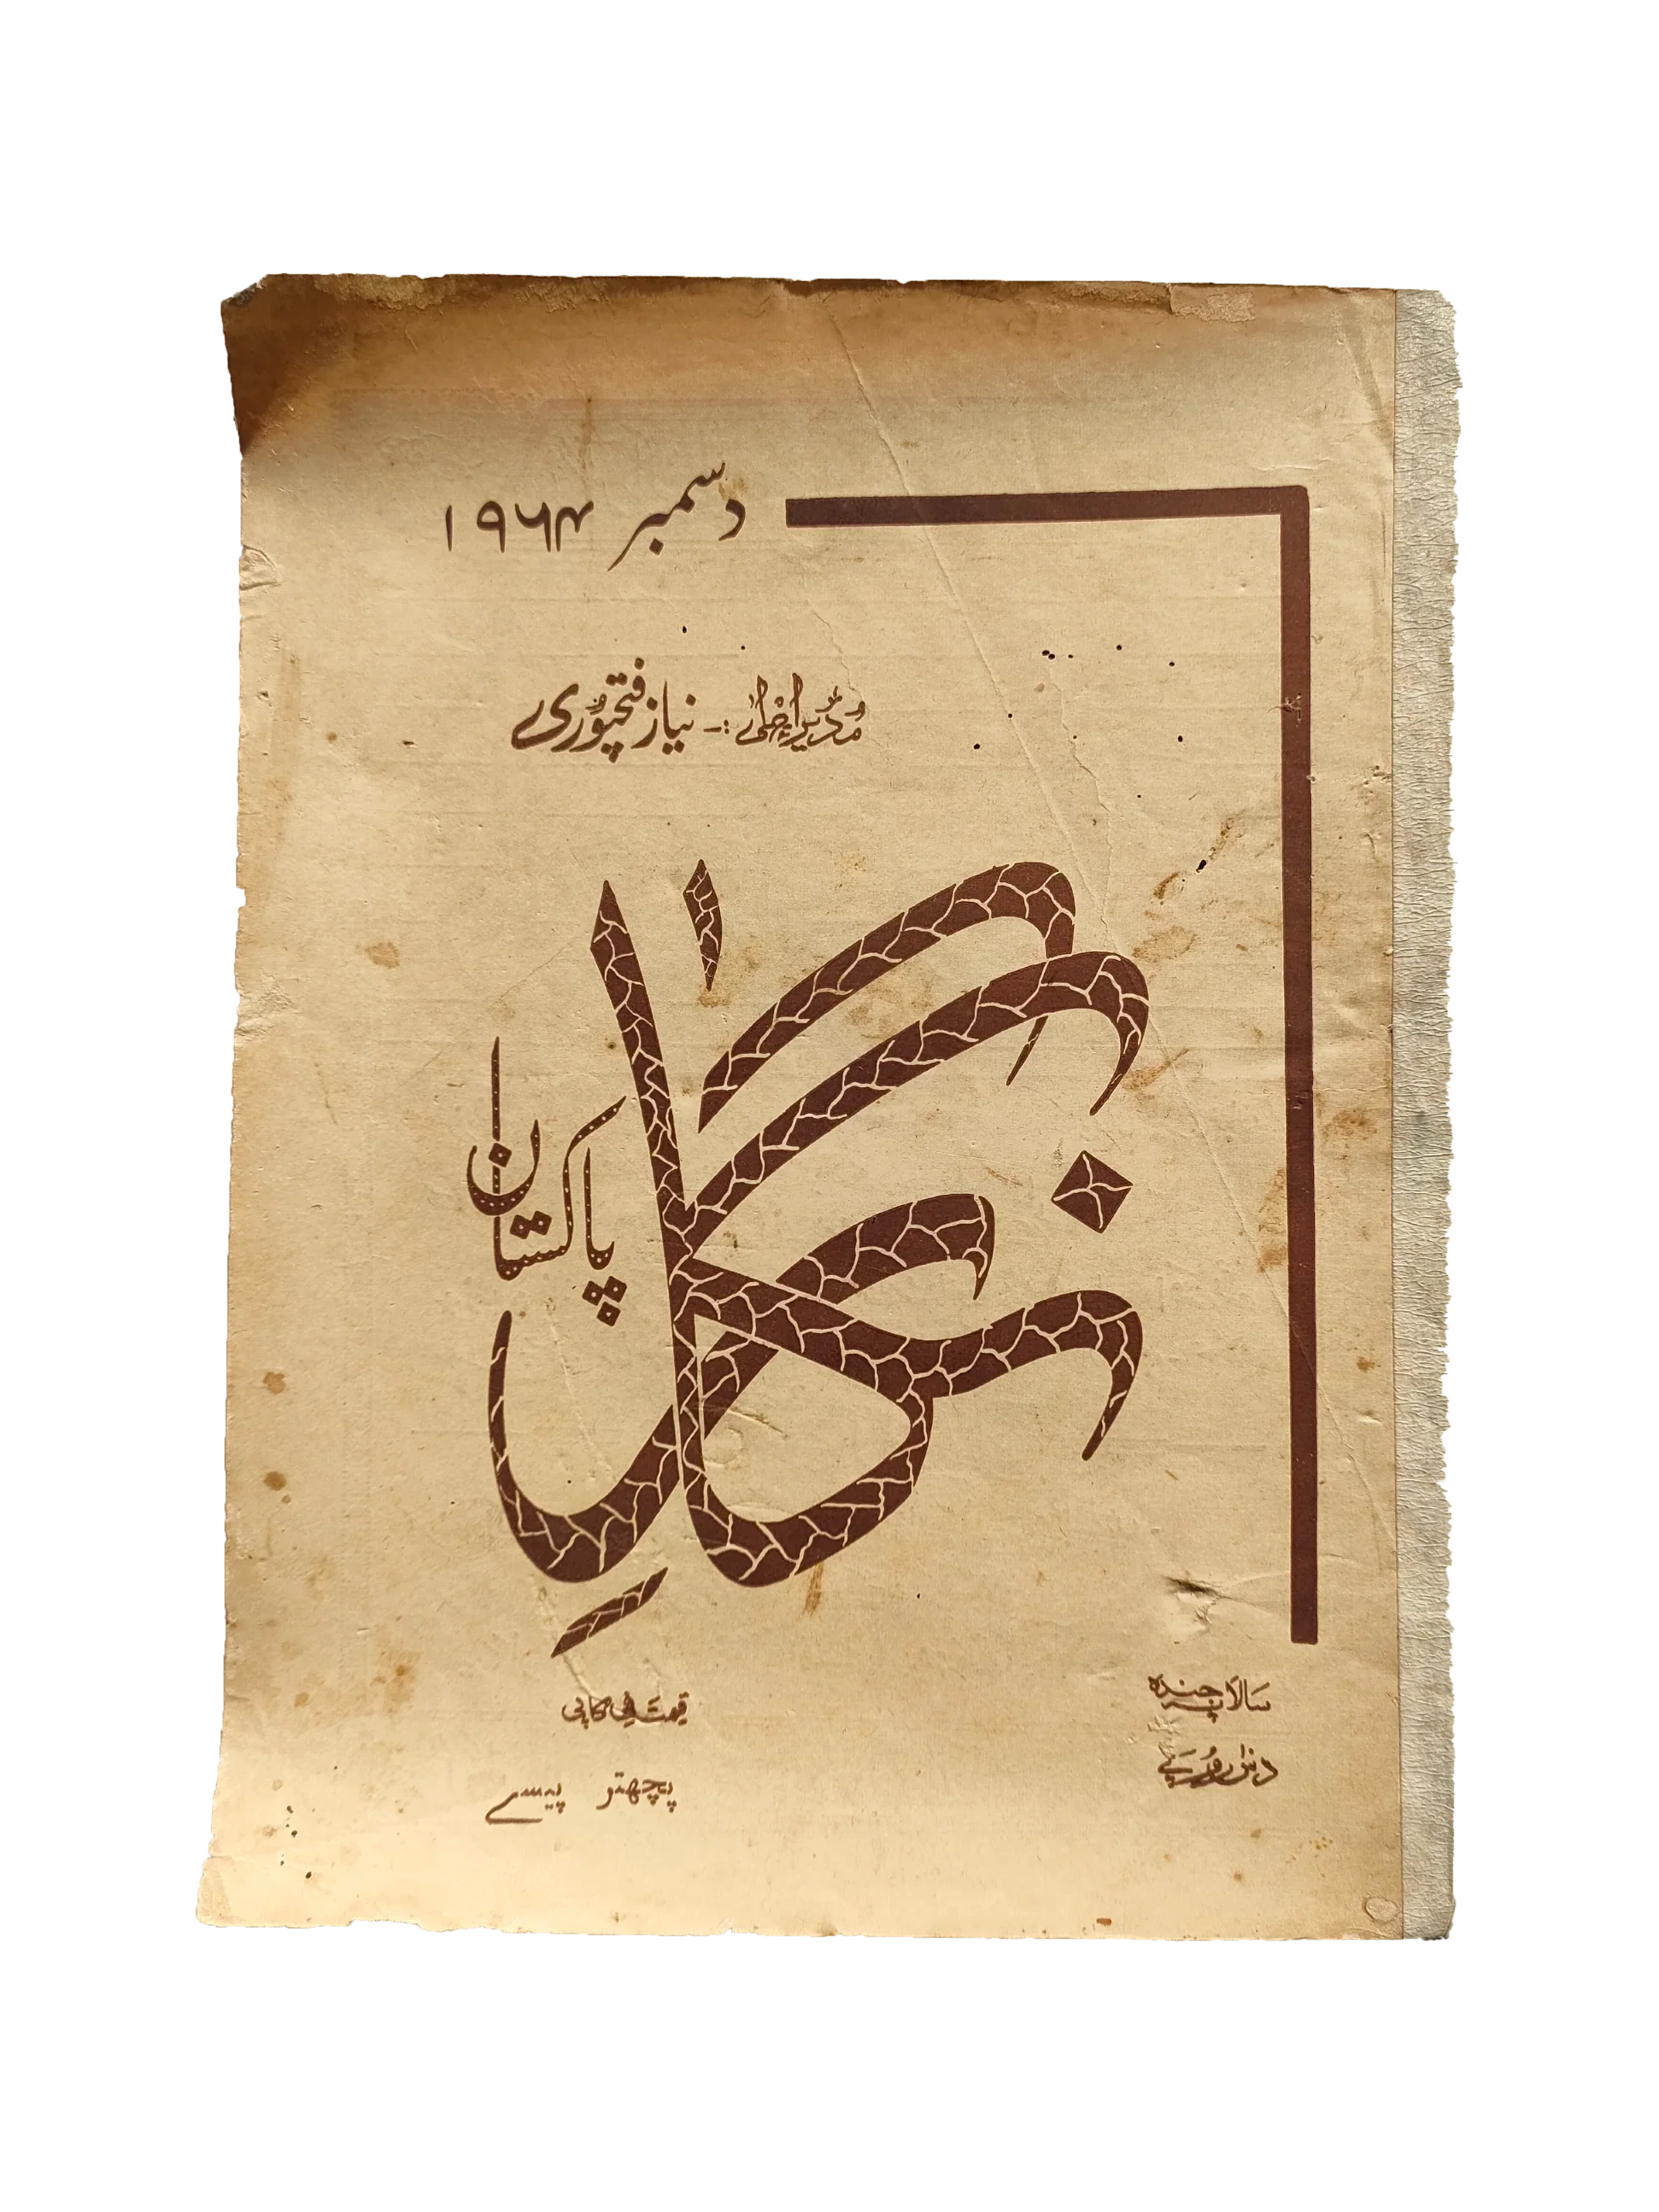 دسمبر ۱۹۶۴
مُدیرِ اعلیٰ :۔ نیاز فتحپُوری
نگارِ
پاکستان
سَالانہ چندہ
دس روپے
قیمت فی کاپی
پچھتر پیسے